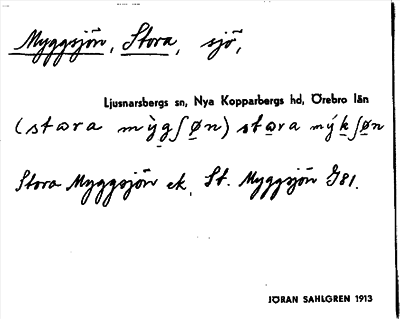 Myggsjön, Stora, sjö,
Ljusnarsbergs sn, Nya Kopparbergs hd, Örebro län
(stɷra mỳgʃøn) stɷra mýkʃøn
Stora Myggsjön ek, St. Myggsjön G81.
JÖRAN SAHLGREN 1913